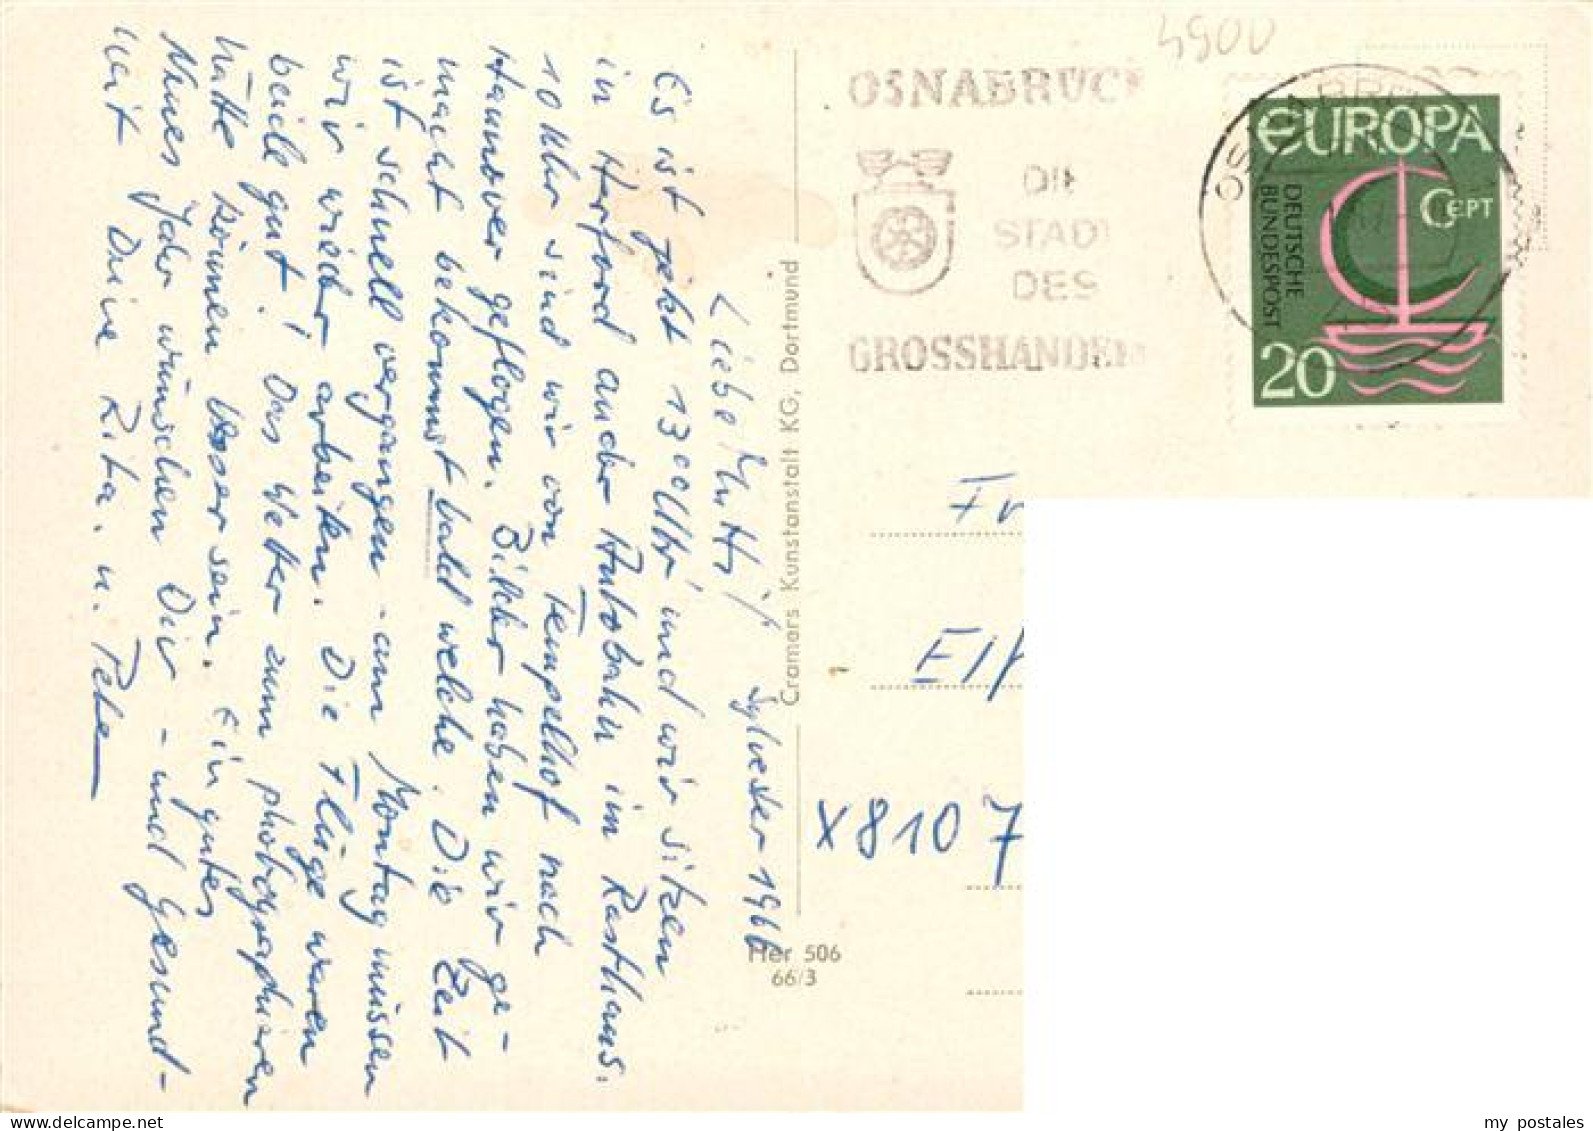 Sylvester 1966
Liebe Mutti!
Es ist jetzt 13 00 Uhr und wir sitzen
in Herford an der Autobahn im Rasthaus.
10 Uhr sind wir von Tempelhof nach
Hannover geflogen. Bilder haben wir ge-
macht bekommst bald welche. Die Zeit
ist schnell vergangen - am Montag müssen
wir wieder arbeiten. Die Flüge waren
beide gut! Das Wetter zum photographieren
hätte können besser sein. Ein gutes
Neues Jahr wünschen Dir - und Gesund-
heit Deine Rita. u. Peter
Cramers Kunstanstalt KG, Dortmund
Her 506
66/3
4900
OSNABRÜCK
DIE
STADT
DES
GROSSHANDEL
OSNABRÜ
EUROPA
CEPT
DEUTSCHE
BUNDESPOST
20
Fr
X8107
my postales